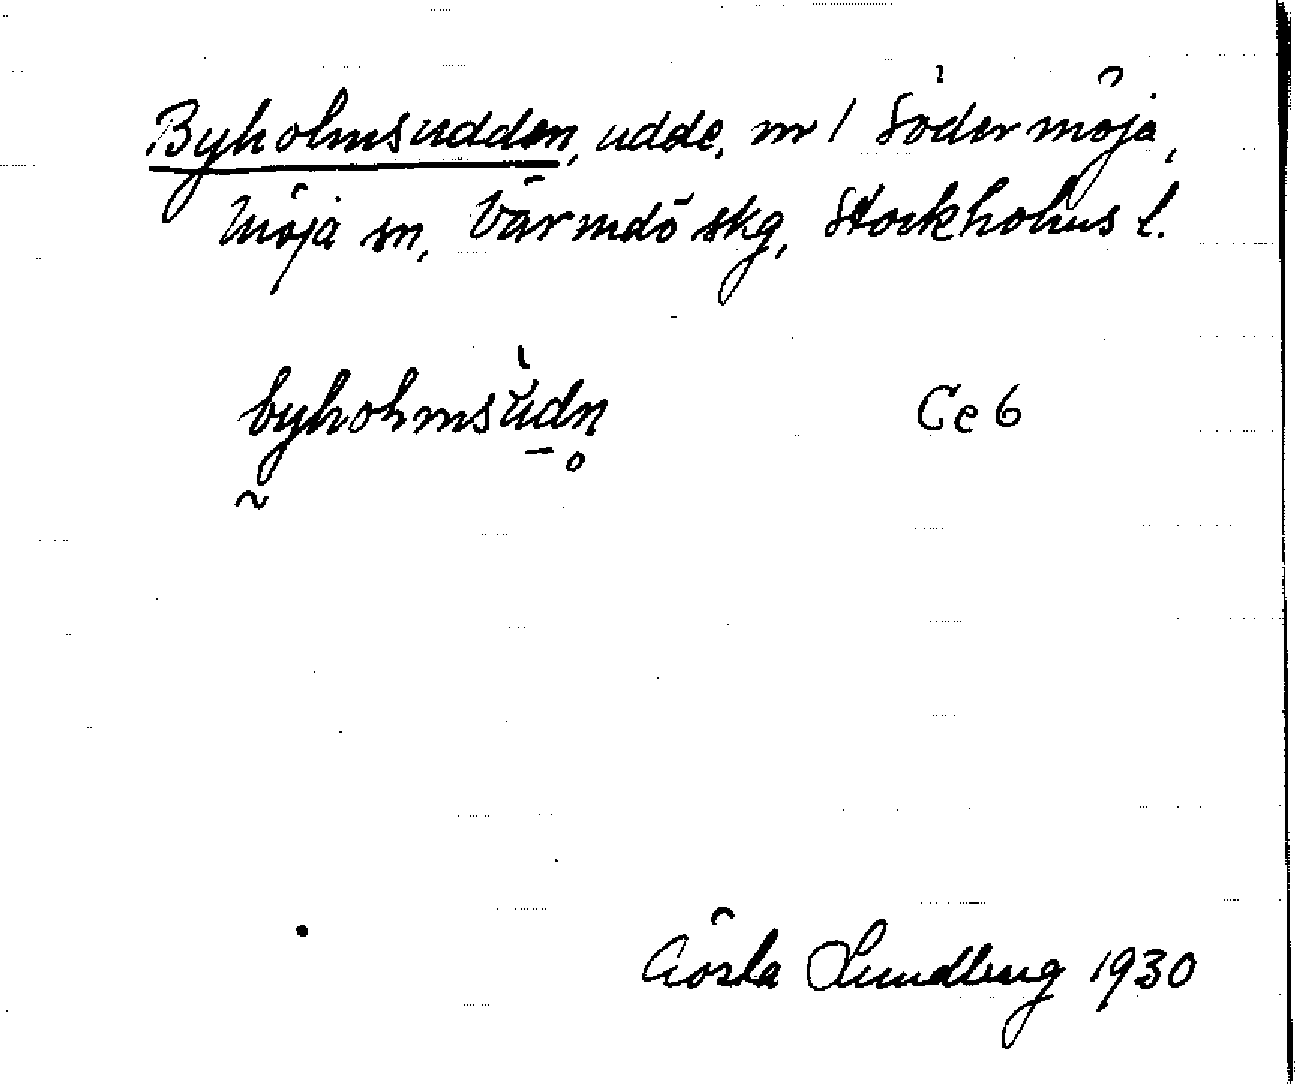 Byholmsudden, udde, nr 1 Södermöja,
Möja sn, Värmdö skg, Stockholms l.
byholmsùdn̥ Ce 6
Gösta Lundberg 1930